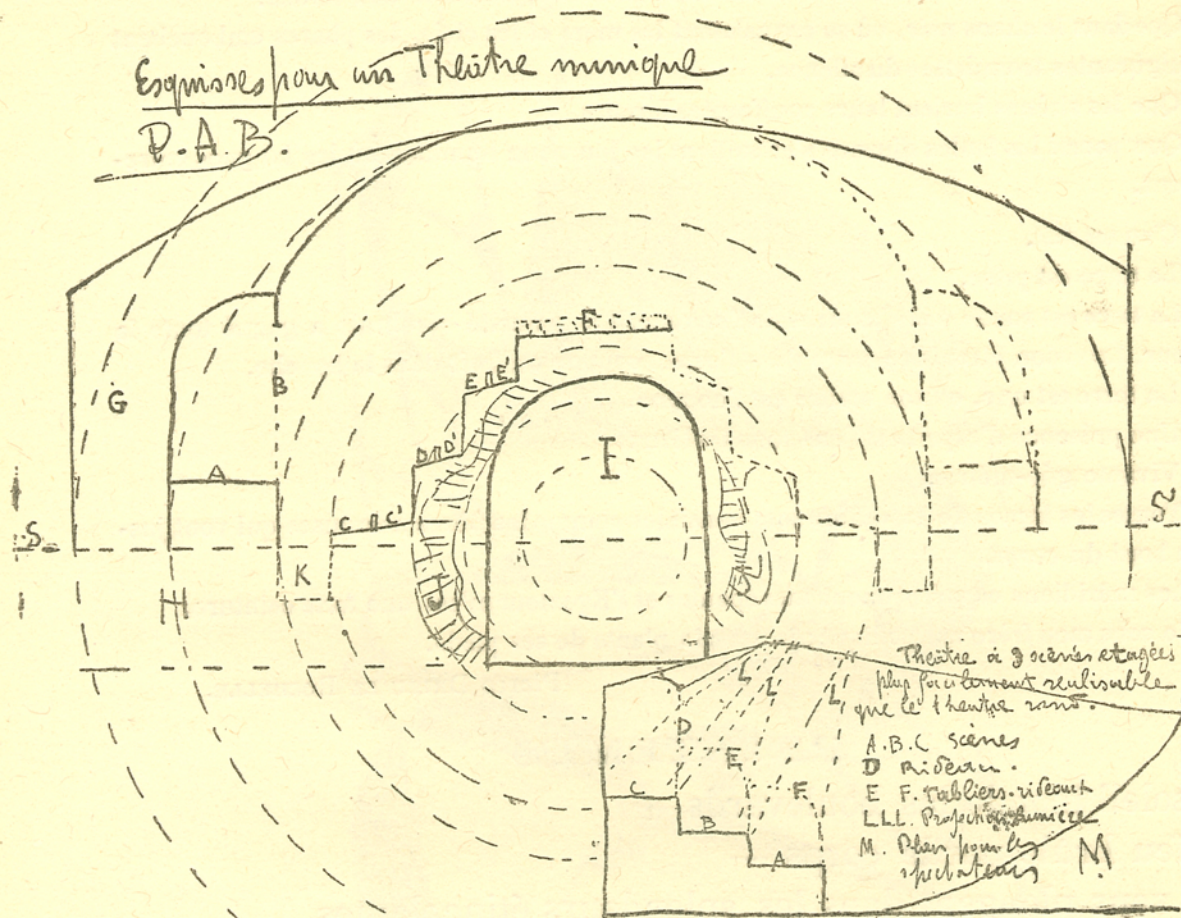 Esquisses pour un Théâtre nunique
P.A.B.
F
E E'
G
B
D D'
I
A
C C'
S S
K
H
J J
Théâtre à 3 scènes etagées
plus facilement realisable
que le theatre rond.
L
L
L
D
E
F
C
B
A
A.B.C scènes
D Rideau.
E F. tabliers-rideaux
LLL. Projection lumière
M. Plan pour les
spectateurs
M